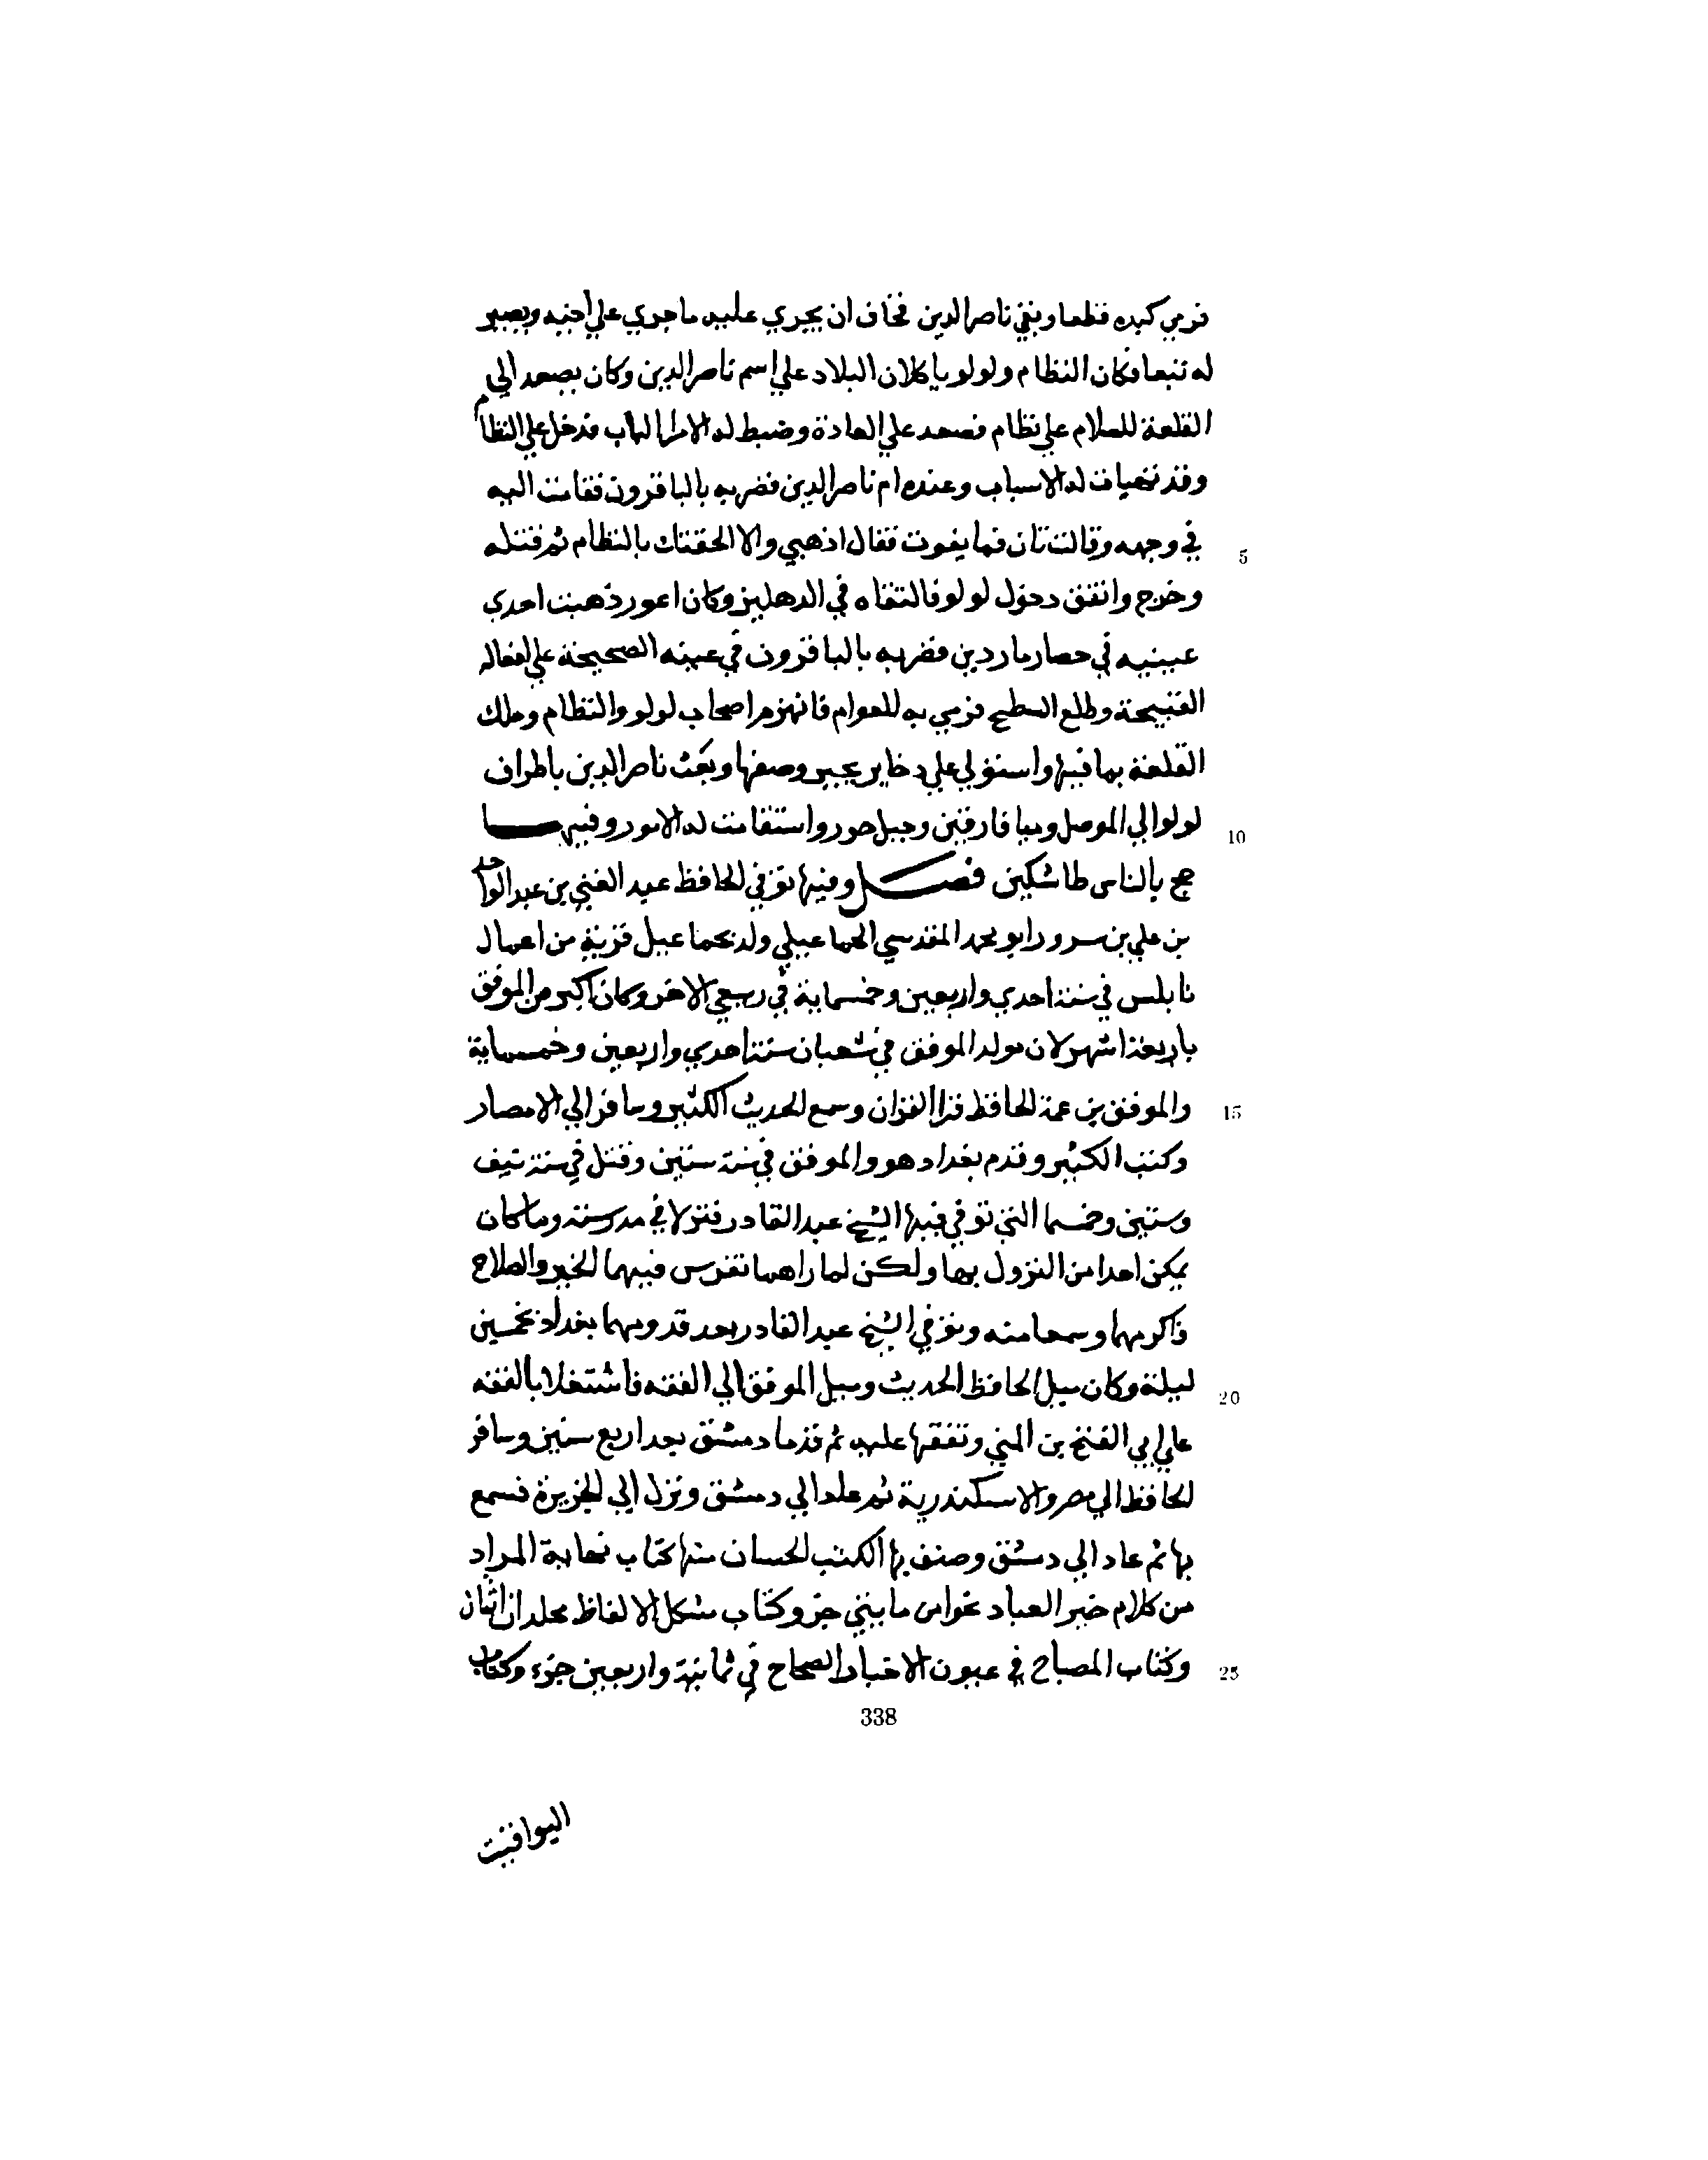 فرمي كبده قطعا وبقي ناصر الدين فخاف ان يجري عليه ما جري علي اخيه ويصير
له تبعا وكان النظام ولولو ياكلان البلاد علي اسم ناصر الدين وكان يصعد الي
القلعة للسلام علي نظام فصعد علي العادة وضبط له الامرا الباب فدخل علي النظام
وقد تهيات له الاسباب وعنده ام ناصر الدين فضربه بالياقرون فقامت اليه
في وجهه وقالت تان فما يفوت فقال اذهبي والا الحقتك بالنظام ثم قتله
وخرج واتفق دخول لولو فالتقاه في الدهليز وكان اعور ذهبت احدي
عينيه في حصار ماردين فضربه بالياقرون في عينه الصحيحة علي افعاله
القبيحة وطلع السطح فرمي به للعوام فانهزم اصحاب لولو والنظام وملك
القلعة بما فيها واستولي علي دخاير يحير وصفها وبعث ناصر الدين باطراف
لولو الي الموصل وميا فارقين وجبل جور واستقامت له الامور وفيها
حج بالناس طاشتكين فصل وفيها توفي الحافظ عبد الغني بن عبد الواحد
بن علي بن سرور ابو محمد المقدسي الجماعيلي ولد بجماعيل قرية من اعمال
نابلس في سنة احدي واربعين وخمسماية في ربيع الاخر وكان اكبر من الموفق
باربعة اشهر لان مولد الموفق في شعبان سنة احدي واربعين وخمسماية
والموفق بن عمة الحافظ قرا القران وسمع الحديث الكثير وسافر الي الامصار
وكتب الكثير وقدم بغداد هو والموفق في سنة ستين وقتل في سنة نيف
وستين وخمسما التي توفي فيها الشيخ عبد القادر فنزلا في مدرسته وما كان
يمكن احدا من النزول بها ولكن لما راهما تفرس فيهما الخير والصلاح
فاكرمهما وسمعا منه وتوفي الشيخ عبد القادر بعد قدومهما بغداد بخمسين
ليلة وكان ميل الحافظ الحديث وميل الموفق الي الفقه فاشتغلا بالفقه
علي ابي الفتح بن المني وتفقها عليه ثم قدما دمشق بعد اربع سنين وسافر
الحافظ الي مصر والاسكندرية ثم عاد الي دمشق ونزل الي الجزيرة فسمع
بها ثم عاد الي دمشق وصنف بها الكتب الحسان منها كتاب نهاية المراد
من كلام خير العباد نحوا من مايتي جز وكتاب مشكل الالفاظ مجلدان اثنان
وكتاب المصباح في عيون الاخبار الصحاح في ثمانية واربعين جزء وكتاب
338
اليواقيت
5
10
15
20
25